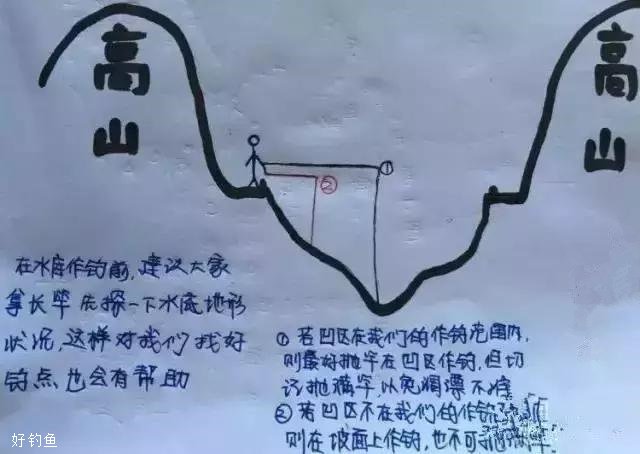 高山
高山
①
②
在水库作钓前,建议大家
拿长竿先探一下水底地形
状况,这样对我们找好
钓点,也会有帮助
① 若凹区在我们的作钓范围内,
则最好抛竿在凹区作钓,但切
记抛满竿,以免漂不准
② 若凹区不在我们的作钓
则在坡面上作钓,也不可
好钓鱼